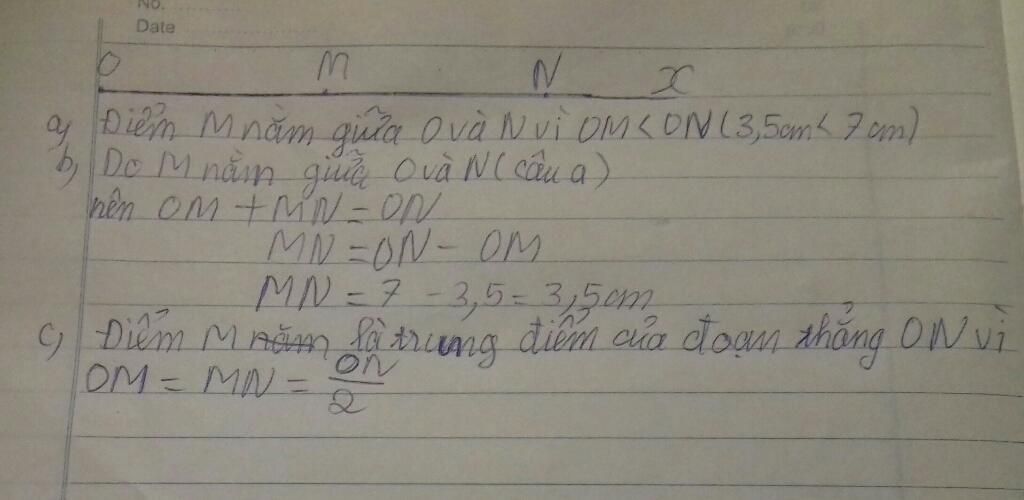 No.
Date
O M N x
a, Điểm M nằm giữa O và N vì OM < ON (3,5cm < 7cm)
b, Do M nằm giữa O và N (câu a)
nên OM + MN = ON
MN = ON - OM
MN = 7 - 3,5 = 3,5cm
c, Điểm M nằm là trung điểm của đoạn thẳng ON vì
OM = MN = ON/2